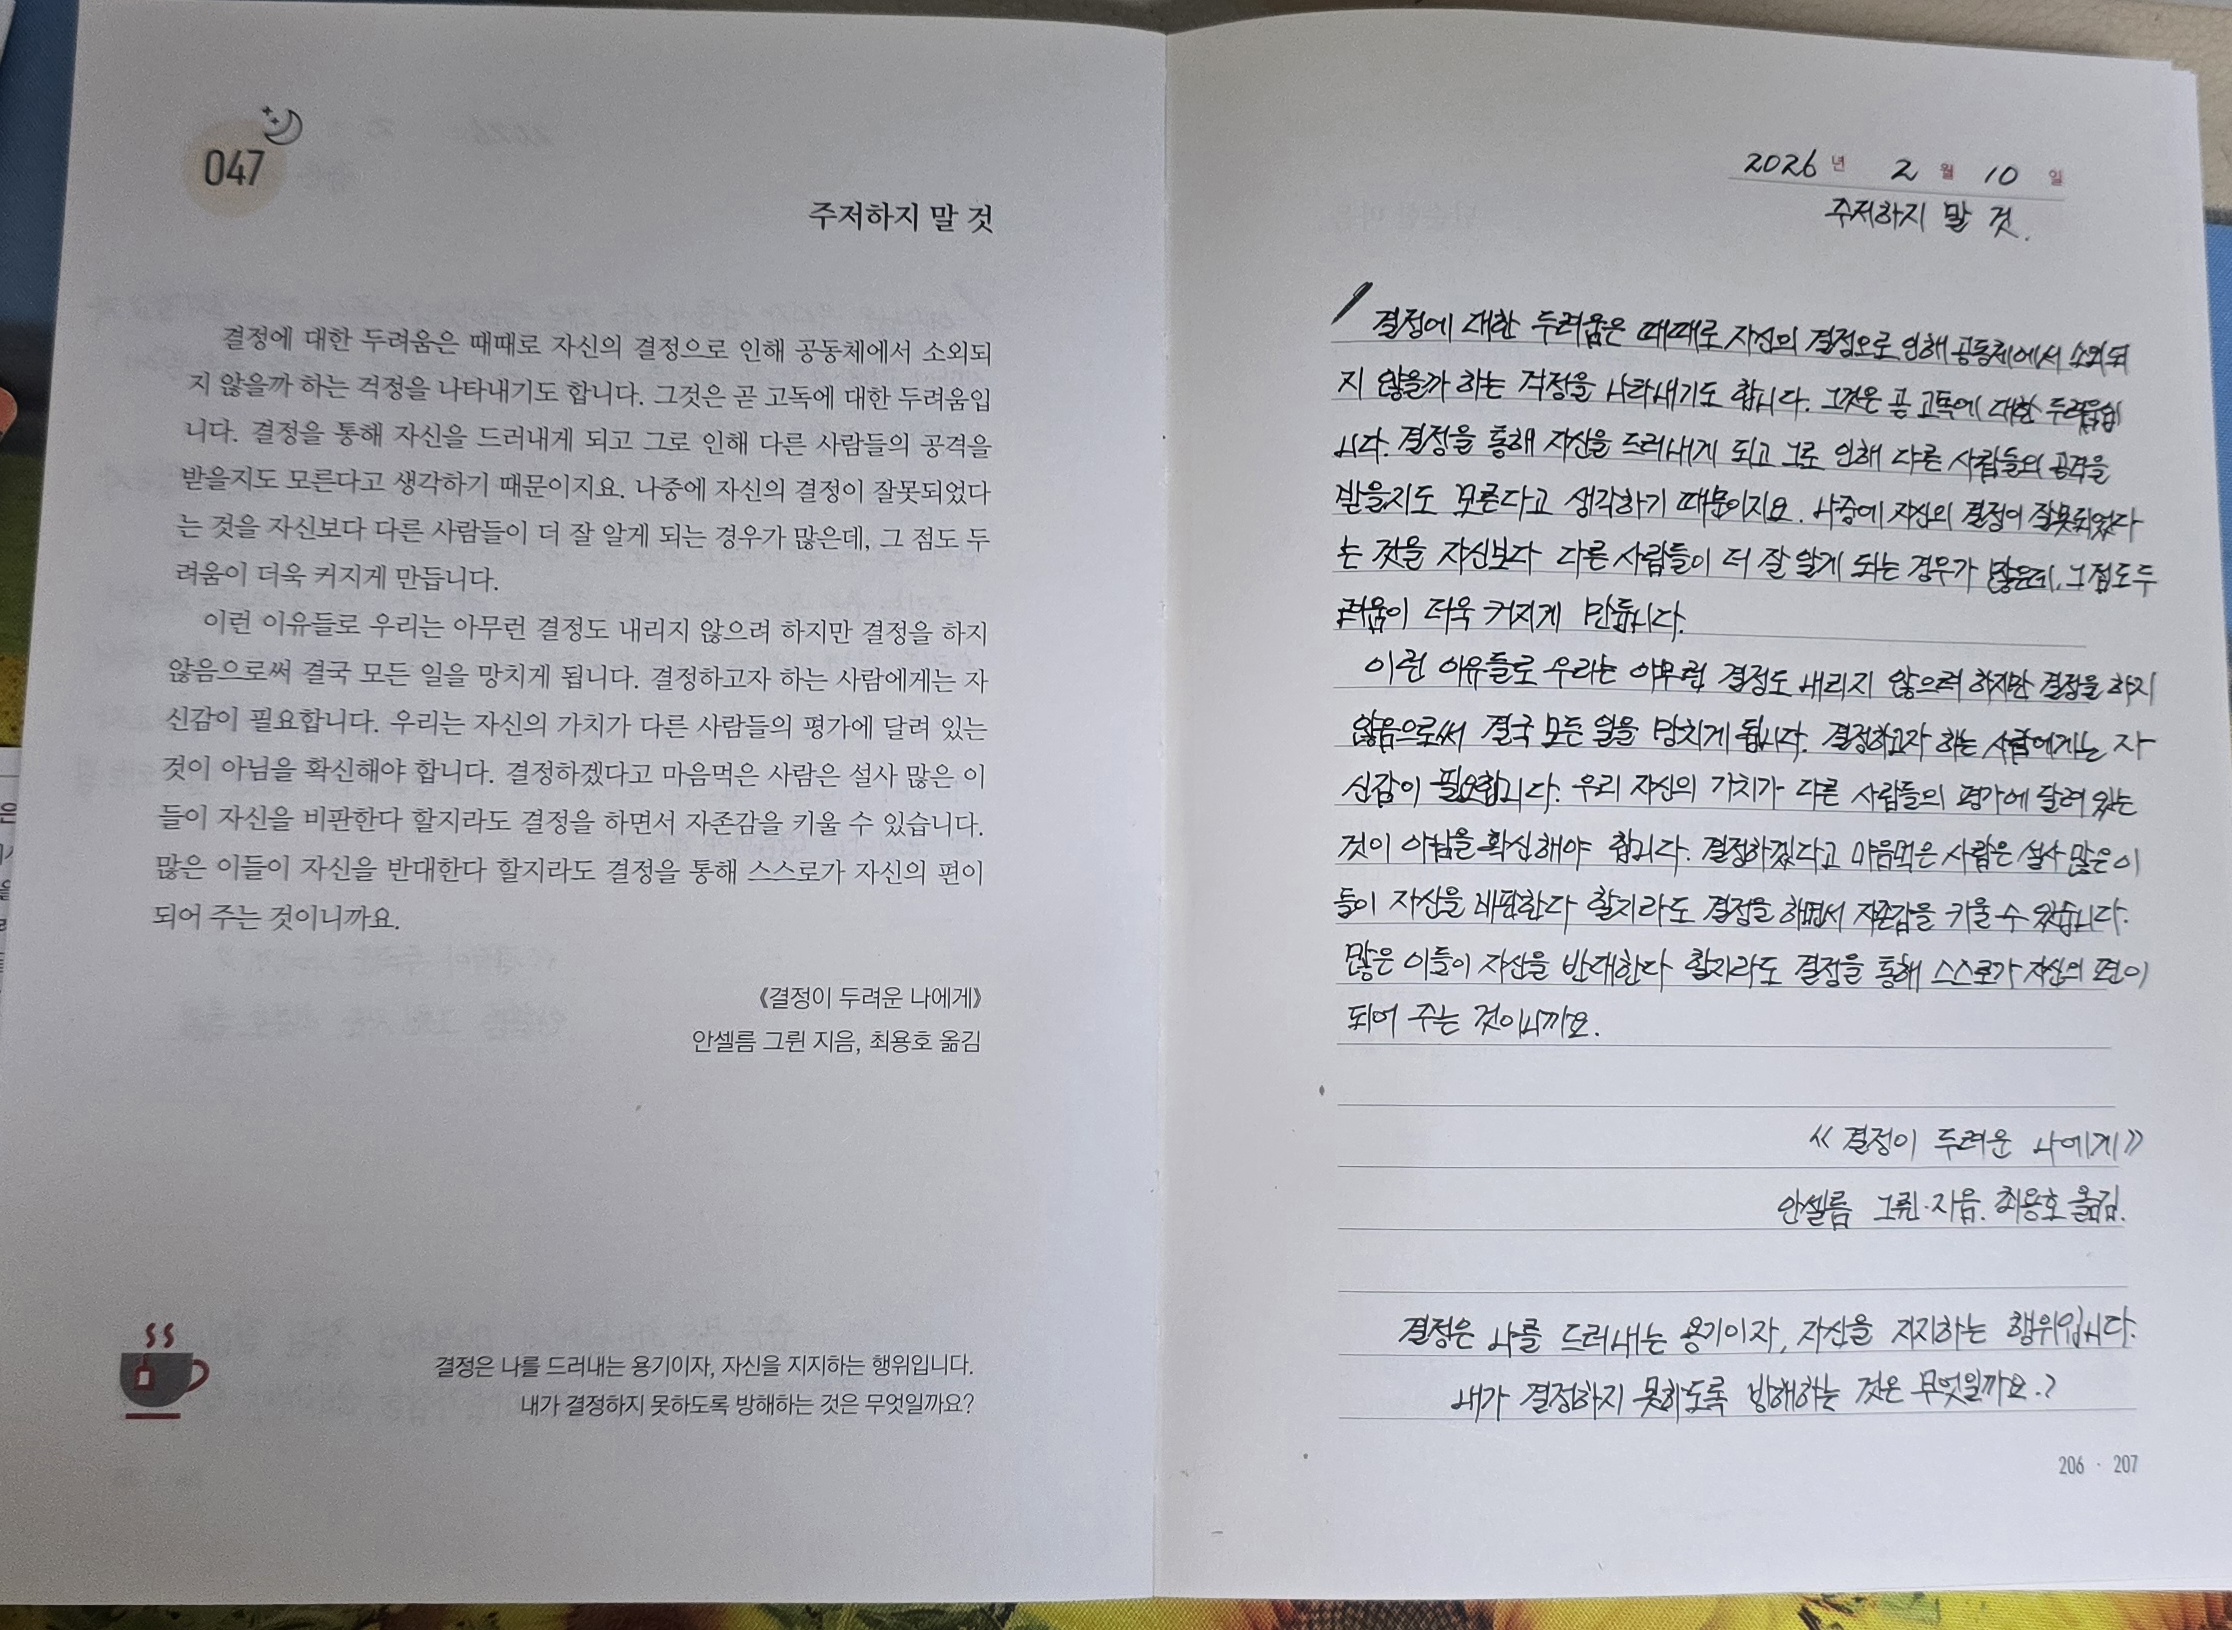 047
주저하지 말 것
결정에 대한 두려움은 때때로 자신의 결정으로 인해 공동체에서 소외되
지 않을까 하는 걱정을 나타내기도 합니다. 그것은 곧 고독에 대한 두려움입
니다. 결정을 통해 자신을 드러내게 되고 그로 인해 다른 사람들의 공격을
받을지도 모른다고 생각하기 때문이지요. 나중에 자신의 결정이 잘못되었다
는 것을 자신보다 다른 사람들이 더 잘 알게 되는 경우가 많은데, 그 점도 두
려움이 더욱 커지게 만듭니다.
이런 이유들로 우리는 아무런 결정도 내리지 않으려 하지만 결정을 하지
않음으로써 결국 모든 일을 망치게 됩니다. 결정하고자 하는 사람에게는 자
신감이 필요합니다. 우리는 자신의 가치가 다른 사람들의 평가에 달려 있는
것이 아님을 확신해야 합니다. 결정하겠다고 마음먹은 사람은 설사 많은 이
들이 자신을 비판한다 할지라도 결정을 하면서 자존감을 키울 수 있습니다.
많은 이들이 자신을 반대한다 할지라도 결정을 통해 스스로가 자신의 편이
되어 주는 것이니까요.
《결정이 두려운 나에게》
안셀름 그륀 지음, 최용호 옮김
결정은 나를 드러내는 용기이자, 자신을 지지하는 행위입니다.
내가 결정하지 못하도록 방해하는 것은 무엇일까요?
2026 년 2 월 10 일
주저하지 말 것.
결정에 대한 두려움은 때때로 자신의 결정으로 인해 공동체에서 소외되
지 않을까 하는 걱정을 나타내기도 합니다. 그것은 곧 고독에 대한 두려움입
니다. 결정을 통해 자신을 드러내게 되고 그로 인해 다른 사람들의 공격을
받을지도 모른다고 생각하기 때문이지요. 나중에 자신의 결정이 잘못되었다
는 것을 자신보다 다른 사람들이 더 잘 알게 되는 경우가 많은데, 그 점도 두
려움이 더욱 커지게 만듭니다.
이런 이유들로 우리는 아무런 결정도 내리지 않으려 하지만 결정을 하지
않음으로써 결국 모든 일을 망치게 됩니다. 결정하고자 하는 사람에게는 자
신감이 필요합니다. 우리 자신의 가치가 다른 사람들의 평가에 달려 있는
것이 아님을 확신해야 합니다. 결정하겠다고 마음먹은 사람은 설사 많은 이
들이 자신을 비판한다 할지라도 결정을 하면서 자존감을 키울 수 있습니다.
많은 이들이 자신을 반대한다 할지라도 결정을 통해 스스로가 자신의 편이
되어 주는 것이니까요.
《결정이 두려운 나에게》
안셀름 그륀·지음. 최용호 옮김.
결정은 나를 드러내는 용기이자, 자신을 지지하는 행위입니다.
내가 결정하지 못하도록 방해하는 것은 무엇일까요.?
206 · 207